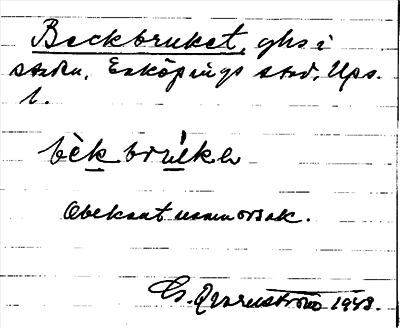 Beckbruket, ghs i
staden, Enköpings stad, Ups.
l.
bèk bruke
Obekant namnorsak.
G. Qvarnström 1943.